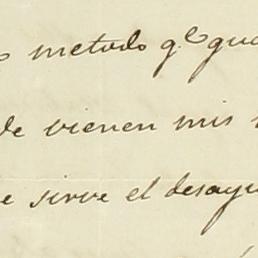 o metodo q.e gua
de vienen mis
e sirve el desayu